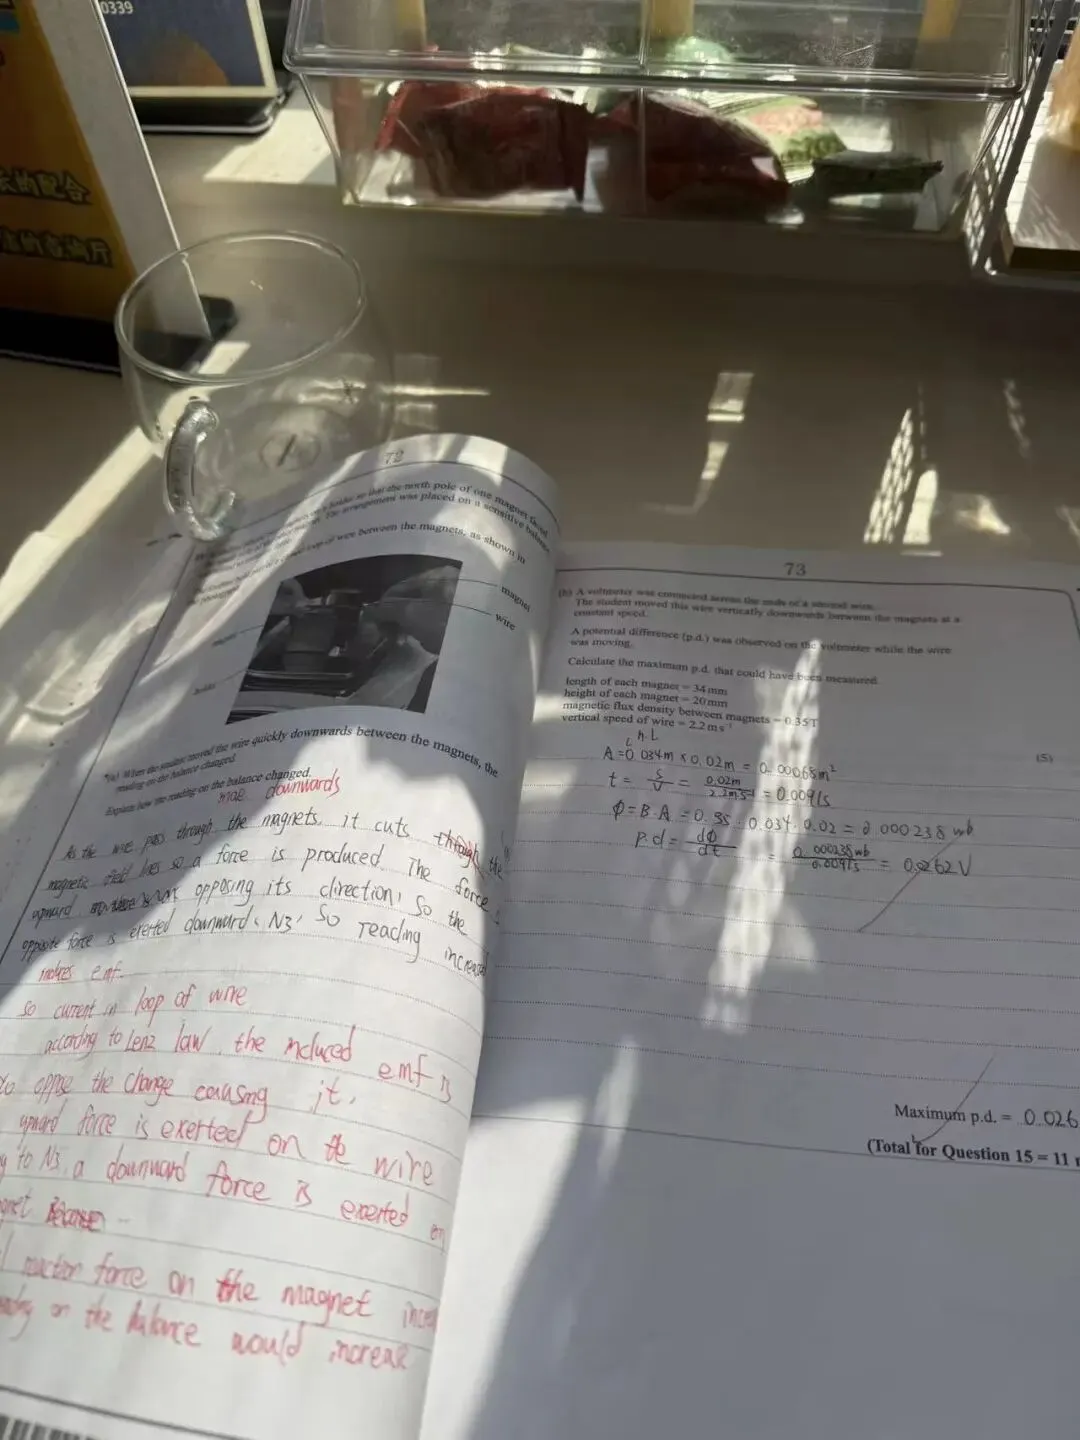 0339
的配合
72
so that the north pole of one magnet faced
The arrangement was placed on a sensitive balance
loop of wire between the magnets, as shown in
magnet
wire
*(a) When the student moved the wire quickly downwards between the magnets, the
reading on the balance changed.
Explain how the reading on the balance changed.
downwards
As the wire pass through the magnets, it cuts through the
magnetic field lines so a force is produced. The force
upward opposing its direction, so the
opposite force is exerted downward N3, so reading increased
induces emf.
so current in loop of wire
according to Lenz law, the induced emf is
to oppse the change causing it.
upward force is exerted on the wire
to N3, a downward force is exerted on
reaction force on the magnet
on the balance would increase
73
(b) A voltmeter was connected across the ends of a second wire.
The student moved this wire vertically downwards between the magnets at a
constant speed.
A potential difference (p.d.) was observed on the voltmeter while the wire
was moving.
Calculate the maximum p.d. that could have been measured.
length of each magnet = 34 mm
height of each magnet = 20 mm
magnetic flux density between magnets = 0.35 T
vertical speed of wire = 2.2 m s⁻¹
(5)
A = 0.034m × 0.02m = 0.00068m²
t = s/v = 0.02m/2.2ms⁻¹ = 0.0091s
Φ = B·A = 0.35 · 0.034 · 0.02 = 0.000238 wb
p.d = dΦ/dt = 0.000238wb/0.0091s = 0.0262V
Maximum p.d. = 0.026
(Total for Question 15 = 11